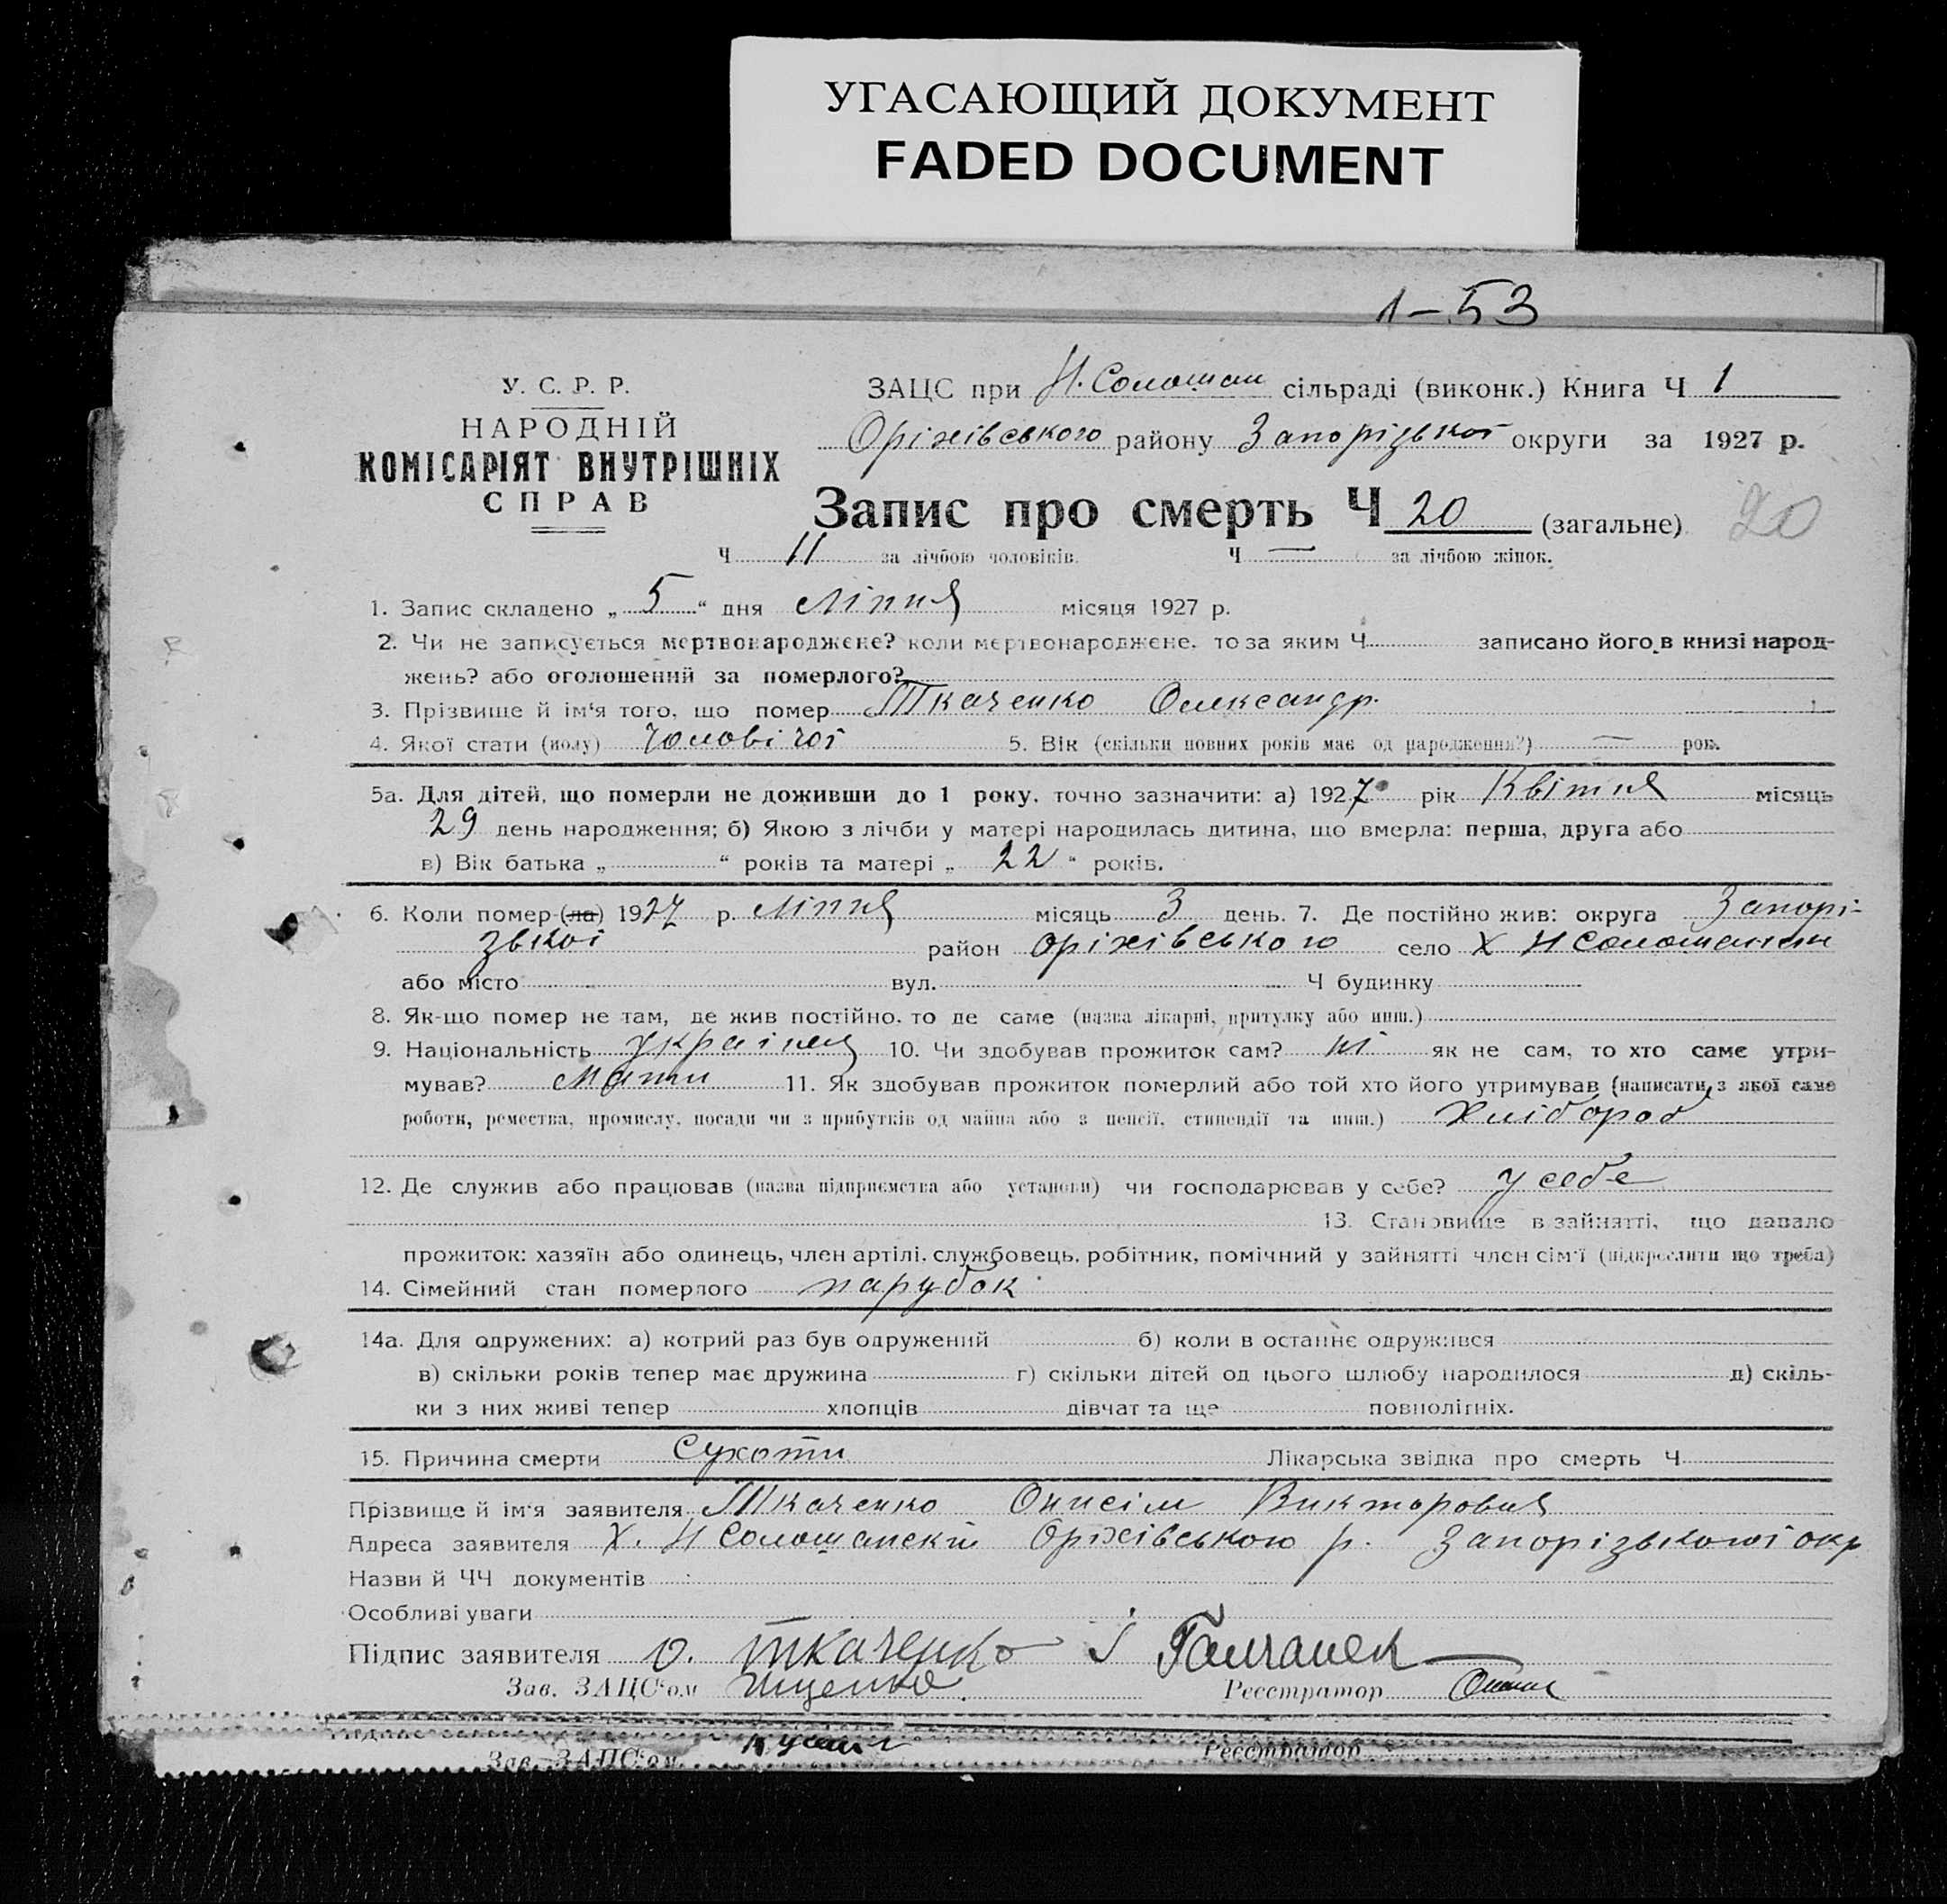 УГАСАЮЩИЙ ДОКУМЕНТ
FADED DOCUMENT
1–53
У. С. Р. Р.
НАРОДНІЙ
КОМІСАРІЯТ ВНУТРІШНІХ
СПРАВ
ЗАЦС при Н. Солошан сільраді (виконк.) Книга Ч 1
Оріхівського району Запорізької округи за 1927 р.
Запис про смерть Ч 20 (загальне) 20
Ч 11 за лічбою чоловіків. Ч — за лічбою жінок.
1. Запис складено „ 5 “ дня Ліпня місяця 1927 р.
2. Чи не записується мертвонароджене? коли мертвонароджене, то за яким Ч записано його в книзі народ-
жень? або оголошений за померлого?
3. Прізвище й ім'я того, що помер Ткаченко Олександр.
4. Якої стати (полу) Чоловічої 5. Вік (скільки повних років має од народження?) — рок.
5а. Для дітей, що померли не доживши до 1 року, точно зазначити: а) 1927 рік Квітня місяць
29 день народження; б) Якою з лічби у матері народилась дитина, що вмерла: перша, друга або
в) Вік батька „ “ років та матері „ 22 “ років.
6. Коли помер (ла) 1927 р. Ліпня місяць 3 день. 7. Де постійно жив: округа Запорі-
зької район Оріхівського село Х Н Солошански
або місто вул. Ч будинку
8. Як-що помер не там, де жив постійно, то де саме (назва лікарні, притулку або инш.)
9. Національність Українец 10. Чи здобував прожиток сам? ні як не сам, то хто саме утри-
мував? Мати 11. Як здобував прожиток померлий або той хто його утримував (написати, з якої саме
роботи, ремества, промислу, посади чи з прибутків од майна або з пенсії, стипендії та инш.) Хлібороб
12. Де служив або працював (назва підприємства або установи) чи господарював у себе? у себе
13. Становище в зайнятті, що давало
прожиток: хазяїн або одинець, член артілі, службовець, робітник, помічний у зайнятті член сім'ї (підкреслити що треба)
14. Сімейний стан померлого парубок
14а. Для одружених: а) котрий раз був одружений б) коли в останнє одружився
в) скільки років тепер має дружина г) скільки дітей од цього шлюбу народилося д) скіль-
ки з них живі тепер хлопців дівчат та ще повнолітніх.
15. Причина смерти Сухоти Лікарська звідка про смерть Ч
Прізвище й ім'я заявителя Ткаченко Онисім Викторович
Адреса заявителя Х. Н Солошанскій Оріхівського р. Запорізької окр
Назви й ЧЧ документів
Особливі уваги
Підпис заявителя О. Ткаченко
Зав. ЗАЦС'ом Іщенко Реєстратор
Зав. ЗАЦС'ом Реєстратор